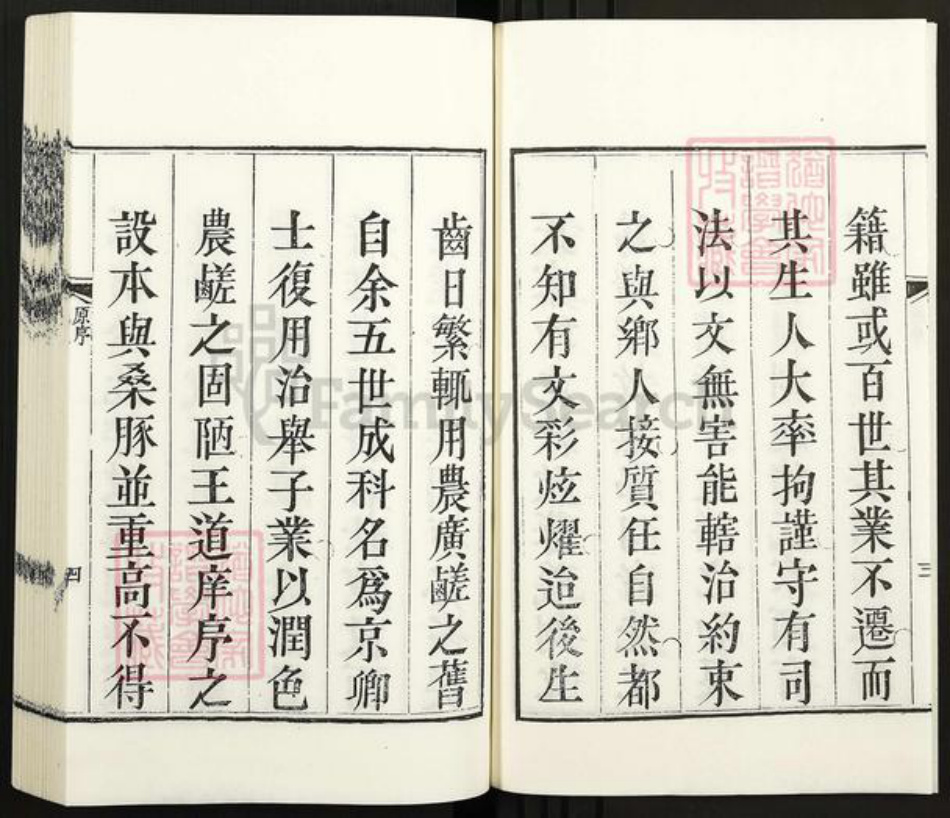 籍雖或百世其業不遷而
其生人大率拘謹守有司
法以文無害能轄治約束
之與鄉人接質任自然都
不知有文彩炫燿迨後生
三
齒日繁輒用農廣鹺之舊
自余五世成科名爲京卿
士復用治舉子業以潤色
農鹺之固陋王道庠序之
設本與桑豚並重高不得
原序
四
FamilySearch